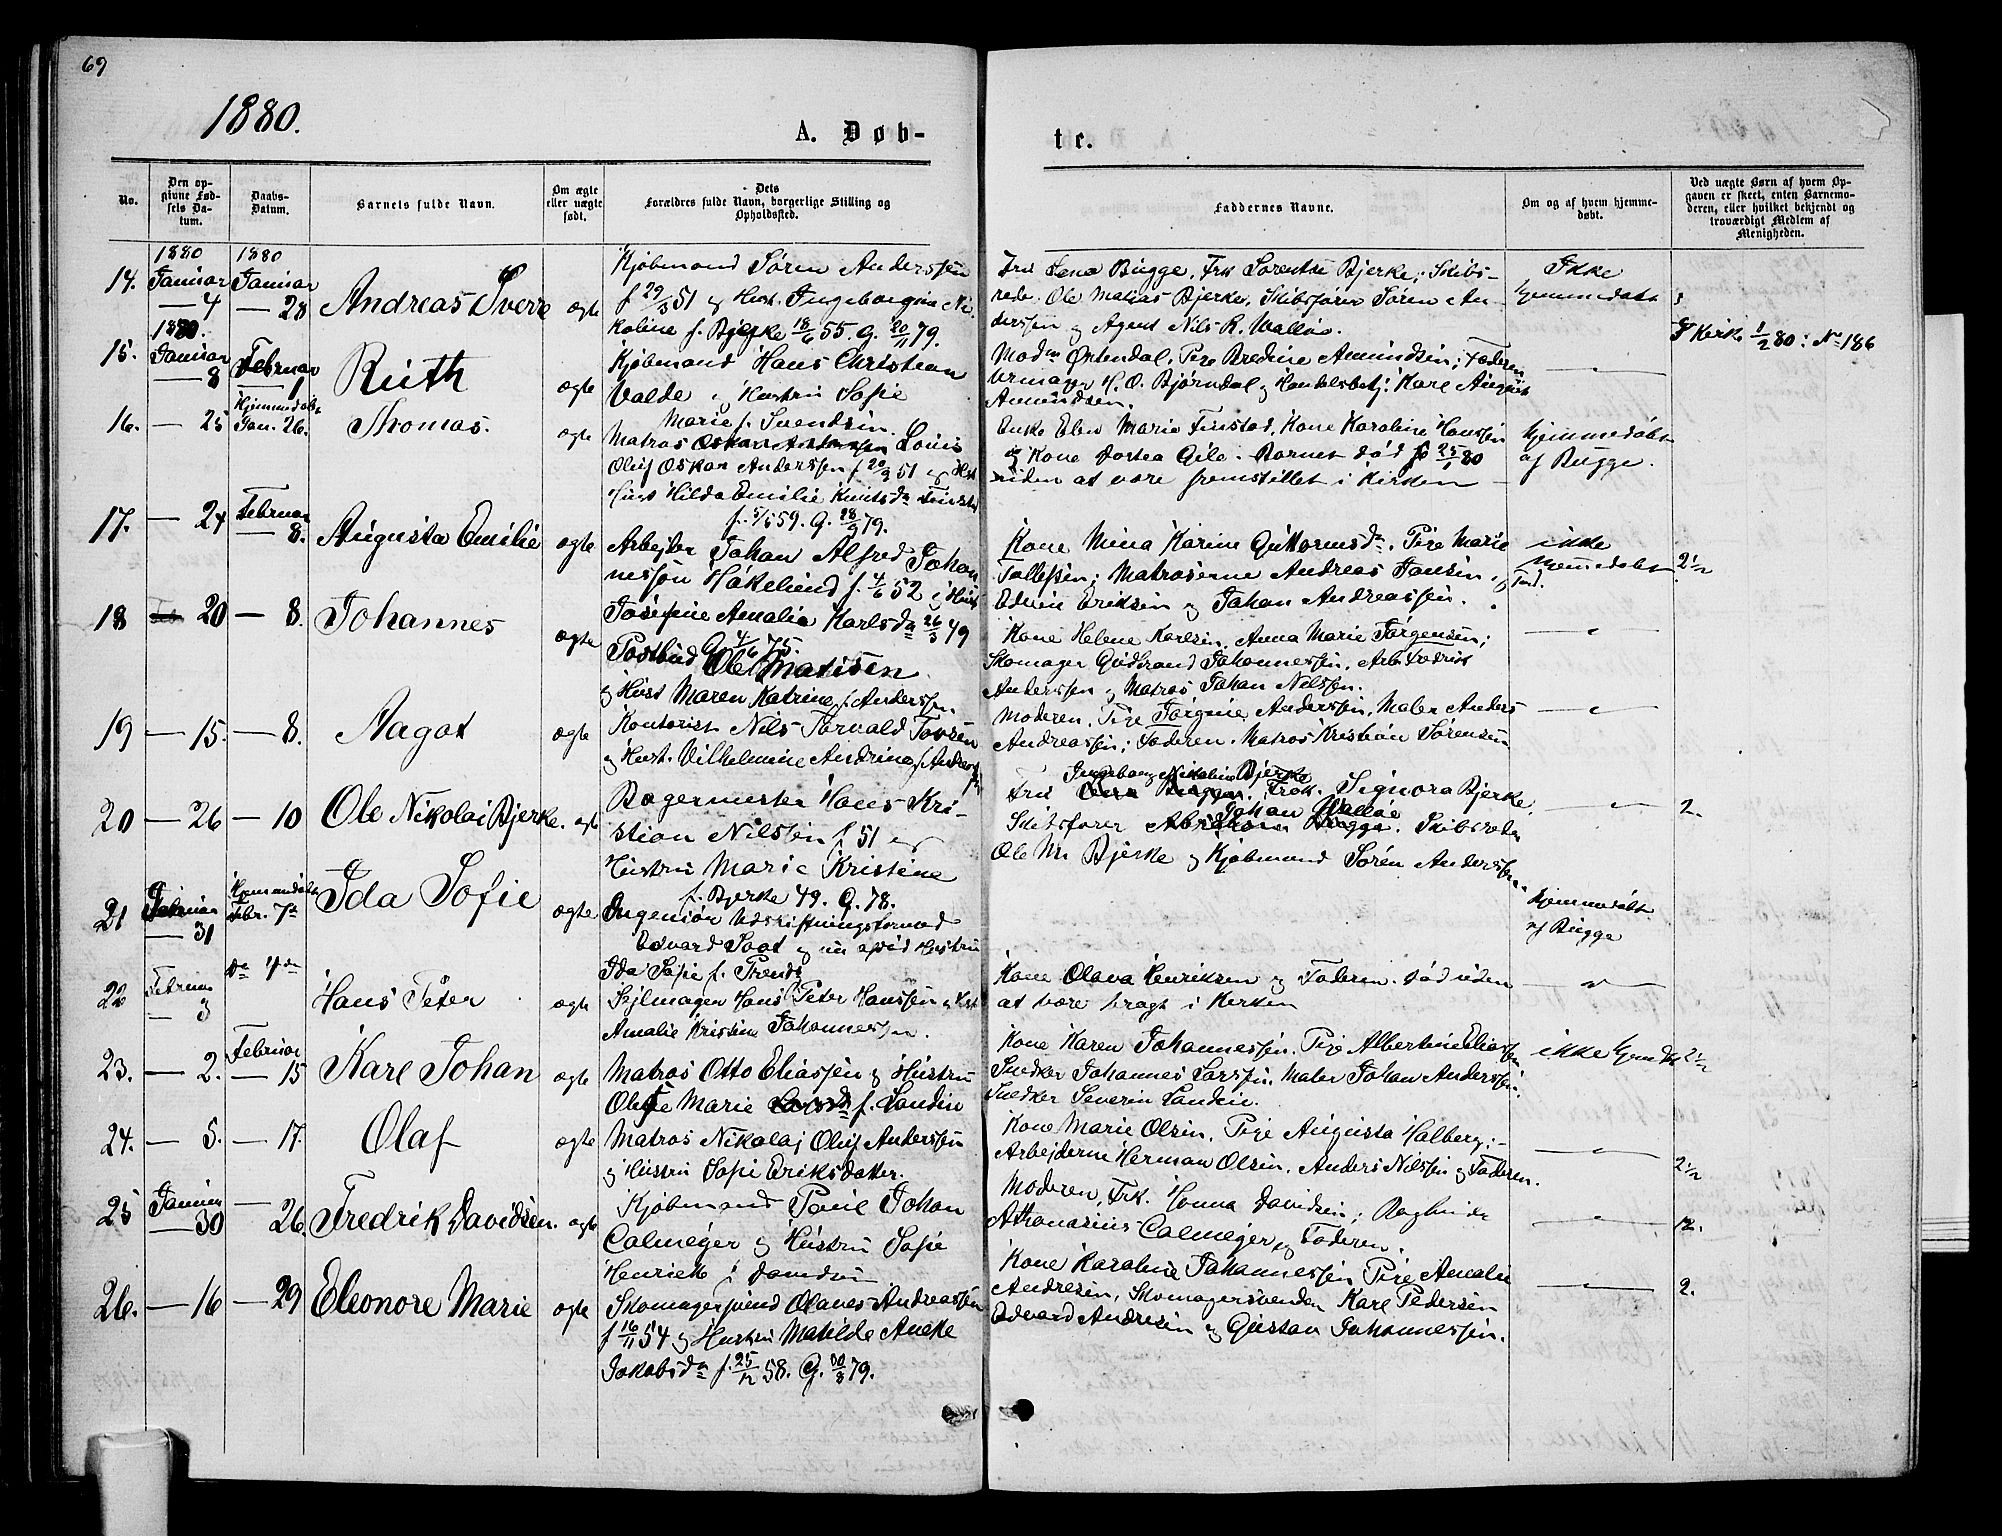 69
1880.
A. Døb-
te.
No.
Den opgivne Fødsels Datum.
Daabs-Datum.
Barnets fulde Navn.
Om ægte eller uægte født.
Dets Forældres fulde Navn, borgerlige Stilling og Opholdssted.
Faddernes Navne.
Om og af hvem hjemmedøbt.
Ved uægte Børn af hvem Opgaven er skeet, enten Barnemoderen, eller hvilket bekjendt og troværdigt Medlem af Menigheden.
1880 1880
14. Januar 4 Januar 28 Andreas Sverre ægte
Kjøbmand Søren Anderssen
f 29/3 51 og Hust. Ingeborgine Ni-
koline f. Bjerke 18/6 55. G. 20/11 79.
Fru Lena Bugge, Frk Sorentse Bjerke; Skibs-
reder Ole Matias Bjerke, Skibsfører Søren An-
derssen og Agent Nils R. Walløe.
Ikke
hjemmedøbt
1880.
15. Januar 8 Februar 1 Ruth ægte
Kjøbmand Hans Christian
Valde og Hustru Sofie
Marie f. Svendsen.
Mod. Østendal, Pige Bredine Amundsen; Faderen
Urmager H. O. Bjørndal og Handelsbetj. Karl August
Amundsen.
Kirke 1/2 80: No 186
16. — 25 Hjemmedøbt Jan. 26. Thomas. ægte
Matros Louis
Oluf Oskar Anderssen f 20/9 51 og
Hust Hilda Emilie Knutsda
f. 5/6 59. G. 28/9 79.
Enke Elen Marie Finstad, Kone Karoline Hanssen
og Kone Dortea Gile. Barnet død 25/1 80
uden at være fremstillet i Kirken
hjemmedøbt
af Bugge.
17. — 24 Februar — 8. Augusta Emilie ægte
Arbejder Johan Alfred Johan
nessen Håkelund f. 4/6 52 og Hust
Josefine Amalia Karlsda 26/3 49
G. 4/6 75.
Kone Mina Karine Gutormsda. Pige Marie
Tollefsen; Matroserne Andreas Jansen,
Edvin Eriksen og Johan Andreassen.
ikke
hjemmedøbt
2 1/2
18 20 — 8. Johannes ægte
Postbud Ole Matisen
og Hust Maren Katrine f. Anderssen.
Kone Helene Karlsen, Anna Marie Jørgensen;
Skomager Gudbrand Johannessen. Arb Fredrik
Anderssen og Matros Johan Nilssen.
19 — 15. — 8. Aagot ægte
Kontorist Nils Torvald Tovsen
og Hust. Vilhelmine Andrine f. Anderssen
Moderen, Pige Jørgine Anderssen, Maler Anders
Andreassen; Faderen. Matros Kristian Sørensen
20 — 26 — 10 Ole Nikolai Bjerke. ægte
Bagermester Hans Kri-
stian Nilssen f 51 og
Hustru Marie Kristine
f. Bjerke 49. G. 78.
Ingeborg Nikoline Bjerke
Fru Frøk. Signora Bjerke,
Johan Walløe
Skibsfører Skibsreder
Ole M. Bjerke og Kjøbmand Søren Anderssen.
2.
21 31 Hjemmedøbt Febr. 7de Ida Sofie ægte
Ingeniør Udskiftningsformand
Edvard Saat og nu afdød Hustru
Ida Sofie f.
hjemmedøbt
af Bugge
22 Februar 3 Do 4de Hans Peter ægte
Sejlmager Hans Peter Hanssen og Hust
Amalie Kristine Johannessen.
Kone Olava Henriksen og Faderen. Død uden
at være bragt i Kirken
23. — 2. Februar — 15 Karl Johan ægte
Matros Otto Eliassen og Hustru
Oleste Marie f. Landin
Kone Karen Johannessen. Pige Albertine Eliassen
Snedker Johannes Larssen. Maler Johan Anderssen
Snedker Severin Landin.
ikke hjemdøbt
2 1/2
24. — 5. — 17. Olaf ægte
Matros Nikolaj Oluf Anderssen
og Hustru Sofie Eriksdatter.
Kone Marie Olsen. Pige Augusta Halberg;
Arbejderne Herman Olsen. Anders Nilssen og Faderen.
2 1/2
25 Januar — 30 — 26. Fredrik Davidsen. ægte
Kjøbmand Paul Johan
Calmeyer og Hustru Sofie
Henriette f. Davidsen
Moderen, Frk. Hanna Davidsen;
Athanasius Calmeyer og Faderen.
12.
26. — 16 — 29 Eleonore Marie ægte
Skomagersvend Olaves Andreassen
f 16/11 54 og Hustru Matilde Aneke
Jakobsda f. 25/12 58. G. 30/8 79.
Kone Karoline Johannessen Pige Amalie
Andresen, Skomagersvenden Karl Pedersen
Edvard Andresen og Gustav Johannessen.
2.